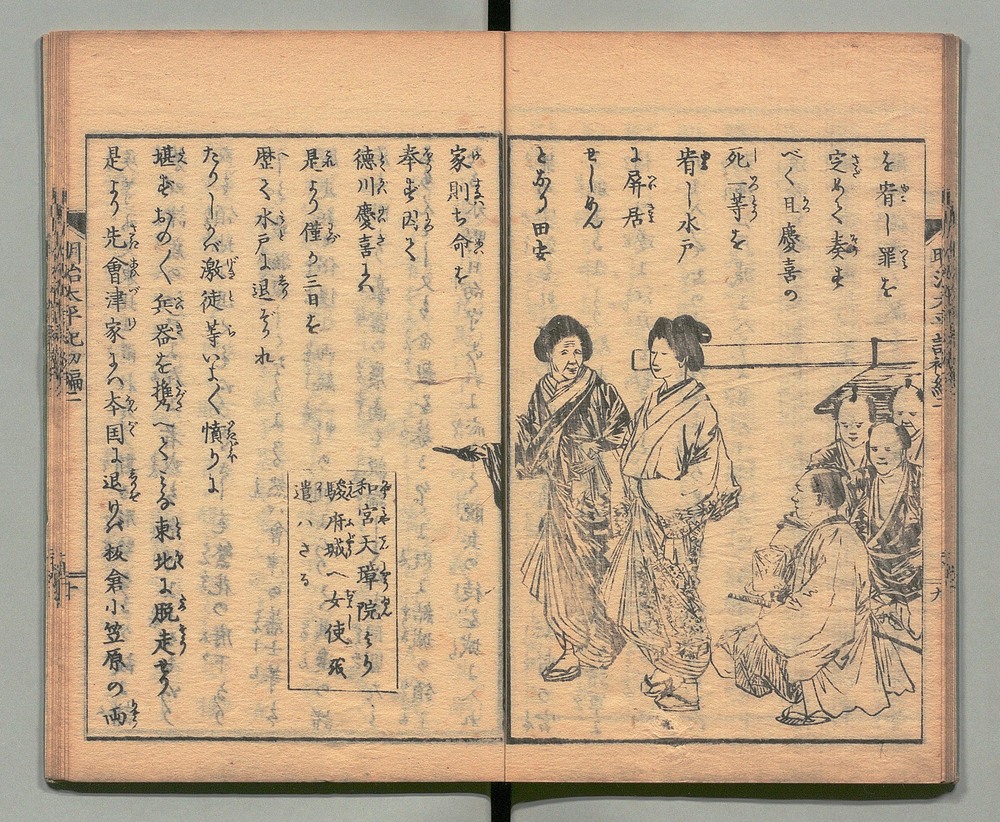 を宥し罪を
定めて奏す
べく且慶喜の
死一等を
宥し水戸
に屏居
せしめん
となり田安
家則ち命を
奉ず因て
徳川慶喜にハ
是より僅か三日を
歴て水戸に退ぞかれ
たりしかバ激徒等いよ〱憤りに
堪ずおの〱兵器を携へところ東北に脱走せり
是より先會津家にハ本国に退けバ板倉小笠原の両
和宮天璋院より
駿府城へ女使を
遣ハさる
明治太平記初編二
九
明治太平記初編二
十